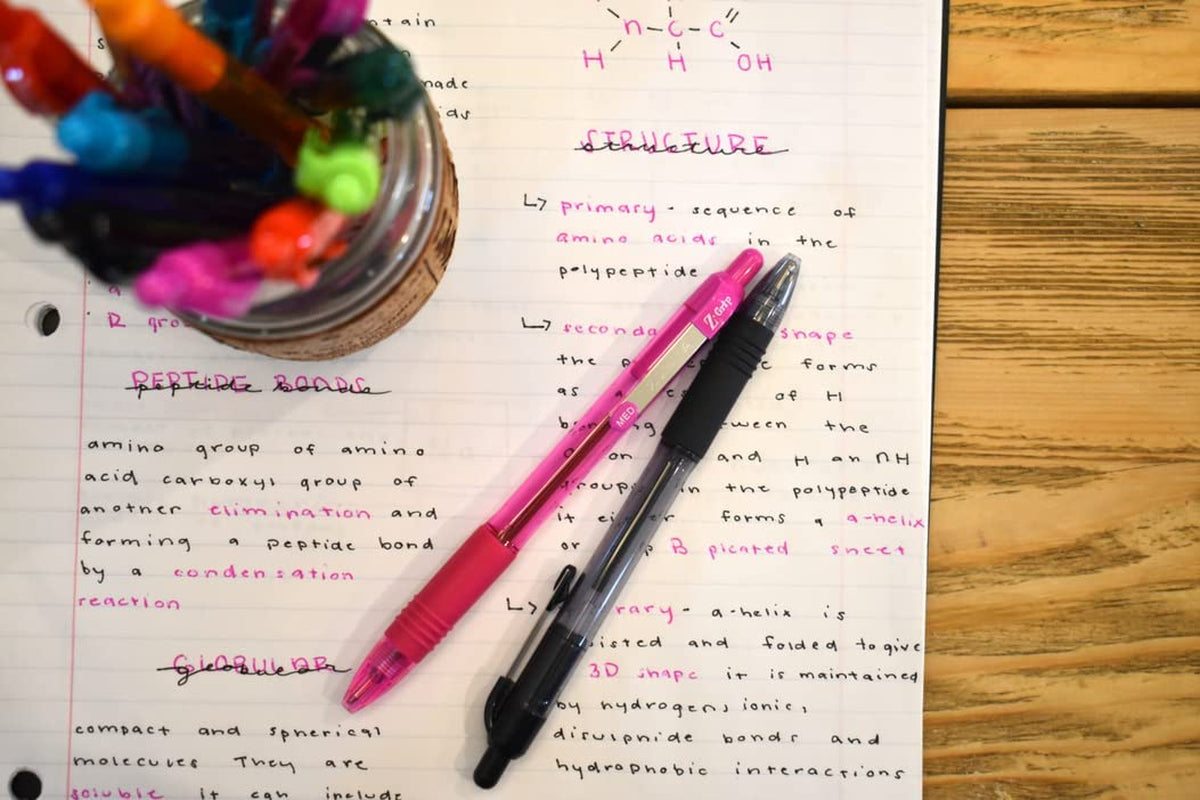 made
R
PEPTIDE BONDS
peptide bonds
amino group of amino
acid carboxyl group of
another elimination and
forming a peptide bond
by a condensation
reaction
GLOBULAR
globular
compact and spherical
molecules They are
soluble it can include
n - C - C
H H OH
STRUCTURE
structure
↳ primary - sequence of
amino acids in the
polypeptide
↳ shape
the forms
as of H
the
and H an NH
in the polypeptide
it forms a a-helix
or B pleated sheet
↳ a-helix is
and folded to give
3D shape it is maintained
by hydrogen, ionic,
disulphide bonds and
hydrophobic interactions
Z-Grip
MED